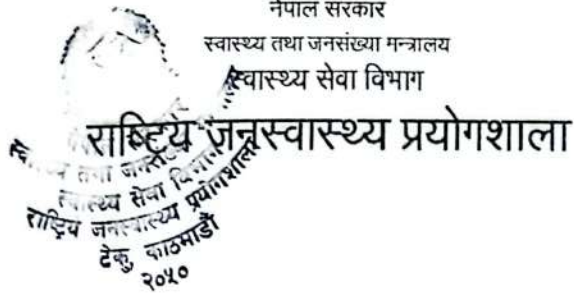 नेपाल सरकार
स्वास्थ्य तथा जनसंख्या मन्त्रालय
स्वास्थ्य सेवा विभाग
राष्ट्रिय जनस्वास्थ्य प्रयोगशाला
स्वास्थ्य तथा जनसंख्या
स्वास्थ्य सेवा विभाग
राष्ट्रिय जनस्वास्थ्य प्रयोगशाला
टेकु, काठमाडौं
२०५०